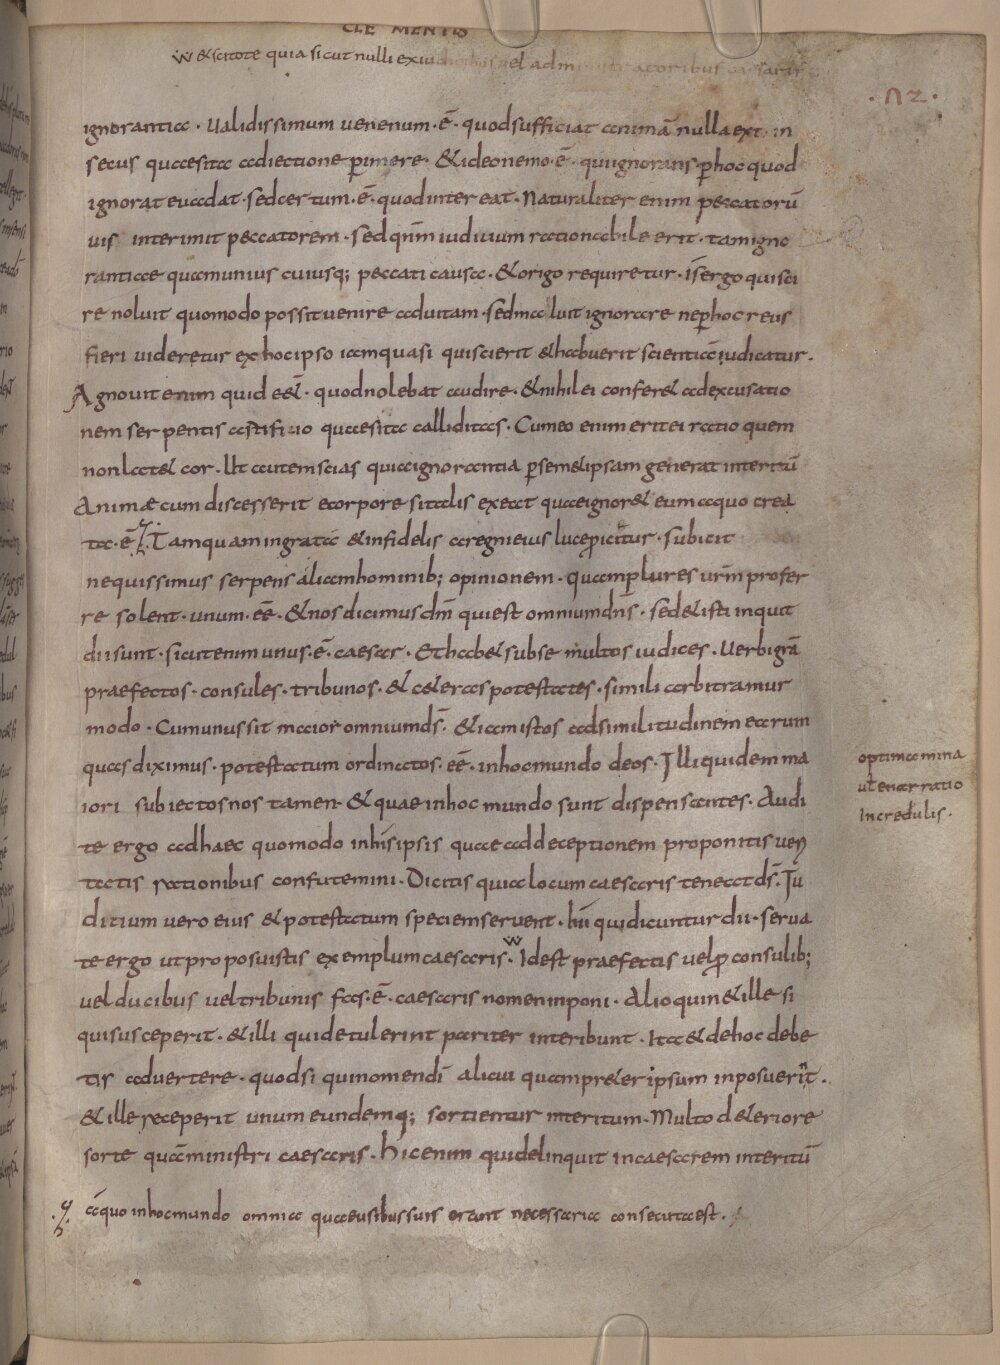 CLEMENTIS
& scitote quia sicut nulli ex iudicibus uel administratoribus caesaris
· n2 ·
ignorantia · Ualidissimum uenenum · ē · quod sufficiat animā nulla ext in
secus quaesita adiectione ꝑimere · & ideo nemo · ē · qui ignorans ꝑ hoc quod
ignorat euadat · sed certum · ē · quod intereat · Naturaliter enim peccatorū
uis interimit peccatorem · sed qnm̄ iudicium rationabile erit · tam igno
rantiae quam unius cuiusq; peccati causa · & origo requiretur · is̄ ergo qui sci
re noluit quomodo possit uenire ad uitam · sed maluit ignorare ne ꝑ hoc reus
fieri uideretur ex hoc ipso iam quasi qui scierit & habuerit scientiā iudicatur .
Agnouit enim quid e&̄ · quod nolebat audire · & nihil ei confer& ad excusatio
nem serpentis astificio quaesita calliditas · Cum eo enim erit ei ratio quem
non lat& cor · Ut autem scias quia ignorantia ꝑ sem&ipsam generat interitū
Animae cum discesserit e corpore si talis exeat quae ignor& eum a quo crea
ta · ē · Tamquam ingrata & infidelis a regni eius luce ꝓicitur · subicit
nequissimus serpens aliam hominib; opinionem · quam plures urm̄ profer
re solent · unum · eē · & nos dicimus dm̄ qui est omnium dn̄s · sed & isti inquit
dii sunt · sicut enim unus · ē · caesar · Et habel subse multos iudices · Uerbi grā
praefectos · consules · tribunos · & c&eras potestates · simili arbitramur
modo · Cum unus sit maior omnium ds̄ · & iam istos ad similitudinem earum
quas diximus · potestatum ordinatos · eē · in hoc mundo deos · Illi quidem ma
iori subiectos nos tamen & quae in hoc mundo sunt dispensantes · Audi
te ergo ad haec quomodo in his̄ ipsis quae ad deceptionem proponitis ueri
tatis rationibus confutemini · Dicitis quia locum caesaris teneat ds̄ · Iu
ditium uero eius & potestatum speciem seruent · hii qui dicuntur dii · serua
te ergo ut proposuistis exemplum caesaris · Id est praefectis uel ꝓconsulib;
uel ducibus uel tribunis fas · ē · caesaris nomen inponi · Alioquin & ille si
qui susceperit · & illi qui detulerint pariter interibunt · Ita & de hoc debe
tis aduertere · quod si qui nomen dī alicui quam preter ipsum inposuerint .
& ille receperit unum eundemq; sortientur interitum · Multo d&eriore
sorte quā ministri caesaris · Hic enim qui delinquit in caesarem interitū
optima mina
ut enarratio
Incredulis ·
ā quo in hoc mundo omnia quae usibus suis erant necessaria consecuta est ·